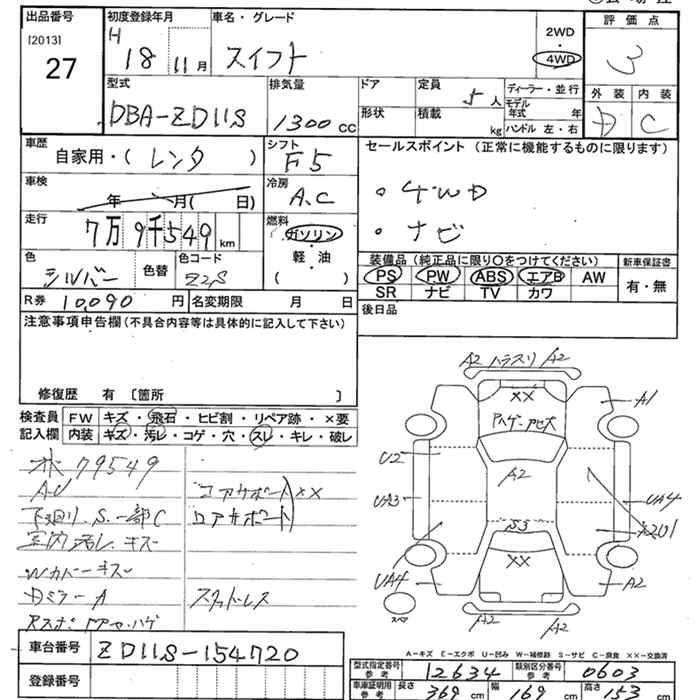 出品番号 初度登録年月 車名・グレード 評価点
[2013] H 18 11月 スイフト 2WD 4WD 3
27 外装 内装
型式 排気量 ドア 定員 5人 ディーラー・並行
DBA-ZD11S 1300cc 形状 積載 kg モデル年式 年 D C
ハンドル 左・右
車歴 シフト セールスポイント(正常に機能するものに限ります)
自家用・(レンタ) F5
車検 冷房 ・4WD
年 月( 日) A.C
走行 燃料 ・ナビ
7万9千549km ガソリン
色 色替 色コード 軽・油 装備品(純正品に限り〇をつけてください) 新車保証書
シルバー Z2S ( ) PS PW ABS エアB AW 有・無
R券 10,090円 名変期限 月 日 SR ナビ TV カワ
注意事項申告欄(不具合内容等は具体的に記入して下さい) 後日品
修復歴 有 〔箇所 〕
検査員 FW キズ・飛石・ヒビ割・リペア跡・×要
記入欄 内装 キズ・汚レ・コゲ・穴・スレ・キレ・破レ
79549
コアサポート ××
下廻り.S.一部C ロアサポート
室内汚レ.キズ
Wカバーキズ
スタットレス
車台番号 ZD11S-154720
登録番号
A2 A2
×× A1
U2 A2
UA3 UA4
S3
××
UA4 A2
スペア A2 A2
A-キズ E-エクボ U-凹み W-補修跡 S-サビ C-腐食 ××-交換済
型式指定番号 参考 12634 類別区分番号 参考 0603
車庫証明用 参考 長さ 369cm 幅 169cm 高さ 153cm